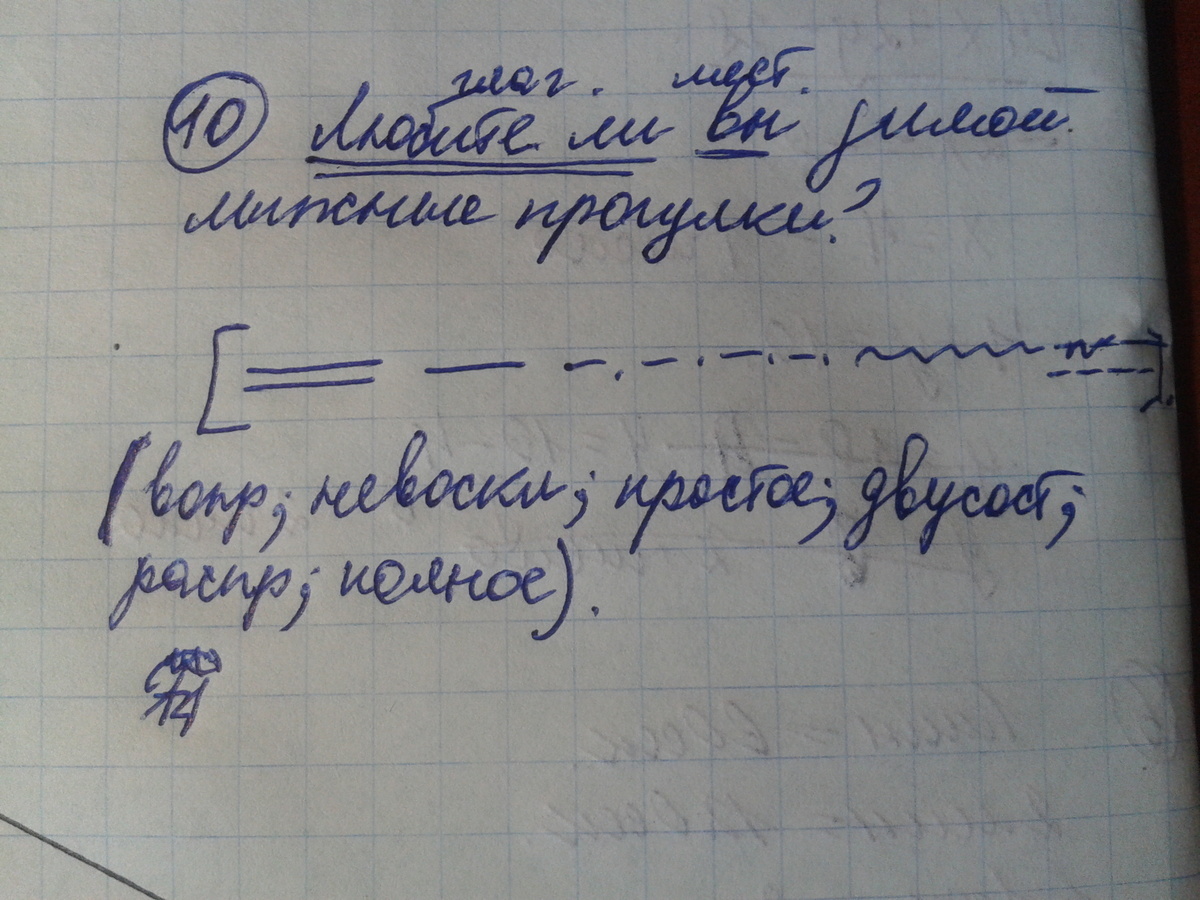 глаг. мест.
10 Любите ли вы зимой
лыжные прогулки?
(вопр; невоскл; простое; двусост;
распр; полное).